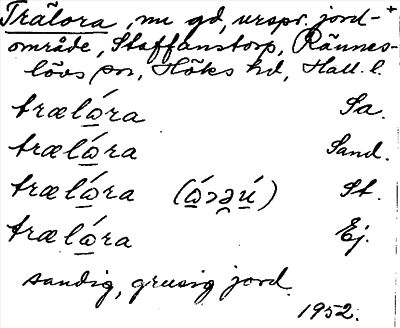 Trälora, nu gd, urspr. jord-+
område, Staffanstorp, Rännes-
lövs sn, Höks hd, Hall. l.
trælǻra Sa.
trælǻra Sand.
trælǻra St.
trælǻra Ej.
sandig, grusig jord.
1952.